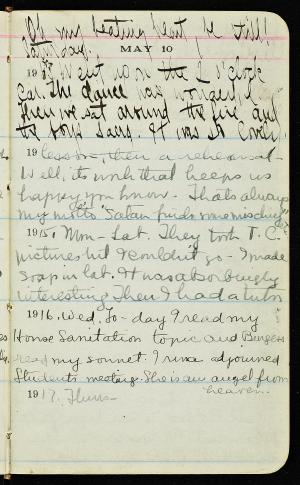 Oh my beating heart be still!
Saturday.
MAY 10
19 I went up on the 2 o'clock
car. The dance was wonderful
Then we sat around the fire and
the boys sang. It was so lovely.
19 lesson, then a rehearsal-
Well, its work that keeps us
happy you know- Thats always
my motto "Satan finds some mischief"
1915, Mon- Lab. They took T. C.
pictures but I couldn't go- I made
soap in lab. It was absorbingly
interesting Then I had a tutor
1916. Wed. To-day I read my
House Sanitation topic and
read my sonnet. I runa adjourned
Students meeting. She is an angel from
heaven.
1917. Thurs-